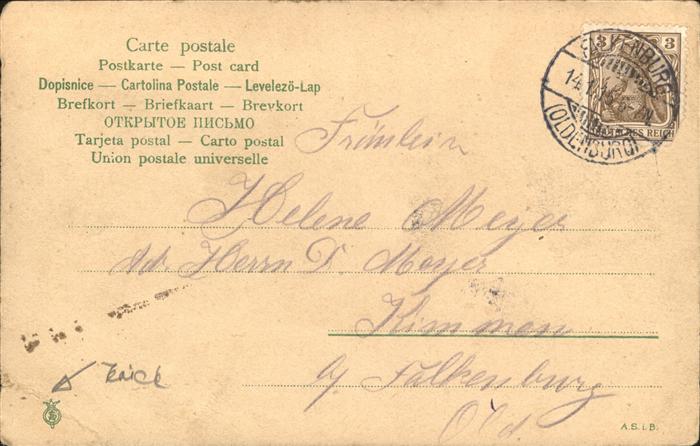 Carte postale
Postkarte — Post card
Dopisnice — Cartolina Postale — Levelezö-Lap
Brefkort — Briefkaart — Brevkort
ОТКРЫТОЕ ПИСЬМО
Tarjeta postal — Carto postal
Union postale universelle
3 3
FALKENBURG
(OLDENBURG)
REICH
Fräulein
Helene Meyer
Herrn D. Meyer
Kimmen
b/ Falkenburg
Old.
A.S.i.B.